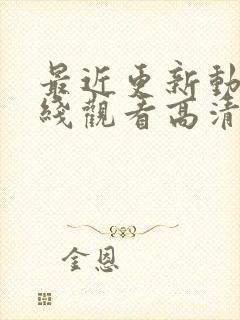 最近更新動
綫觀看高清
金恩